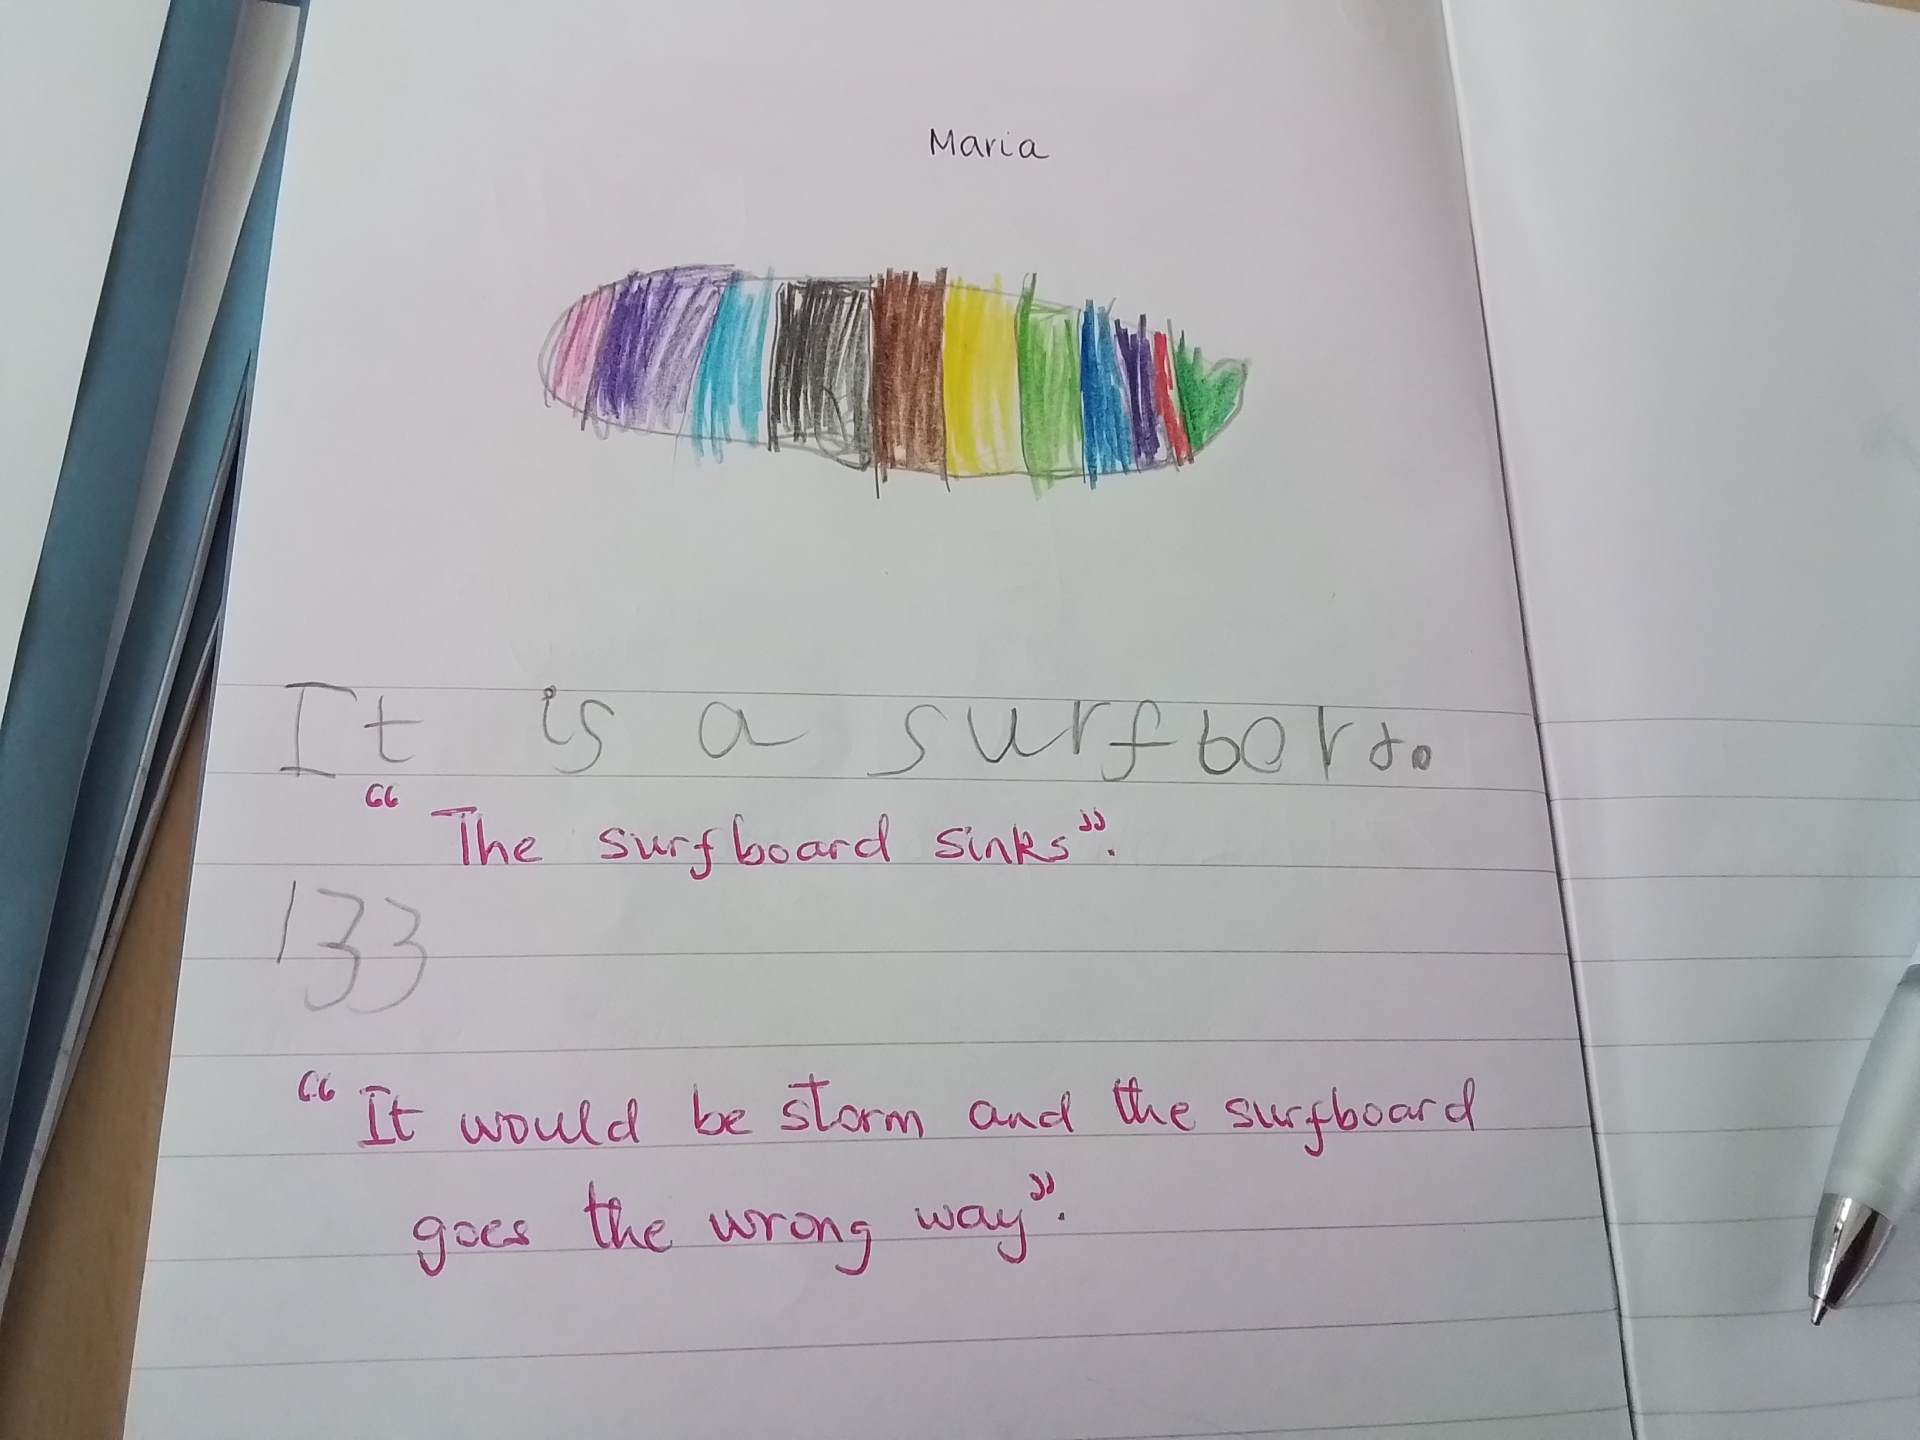 Maria
It is a surfbord.
“The surfboard sinks”.
133
“It would be storm and the surfboard
goes the wrong way”.